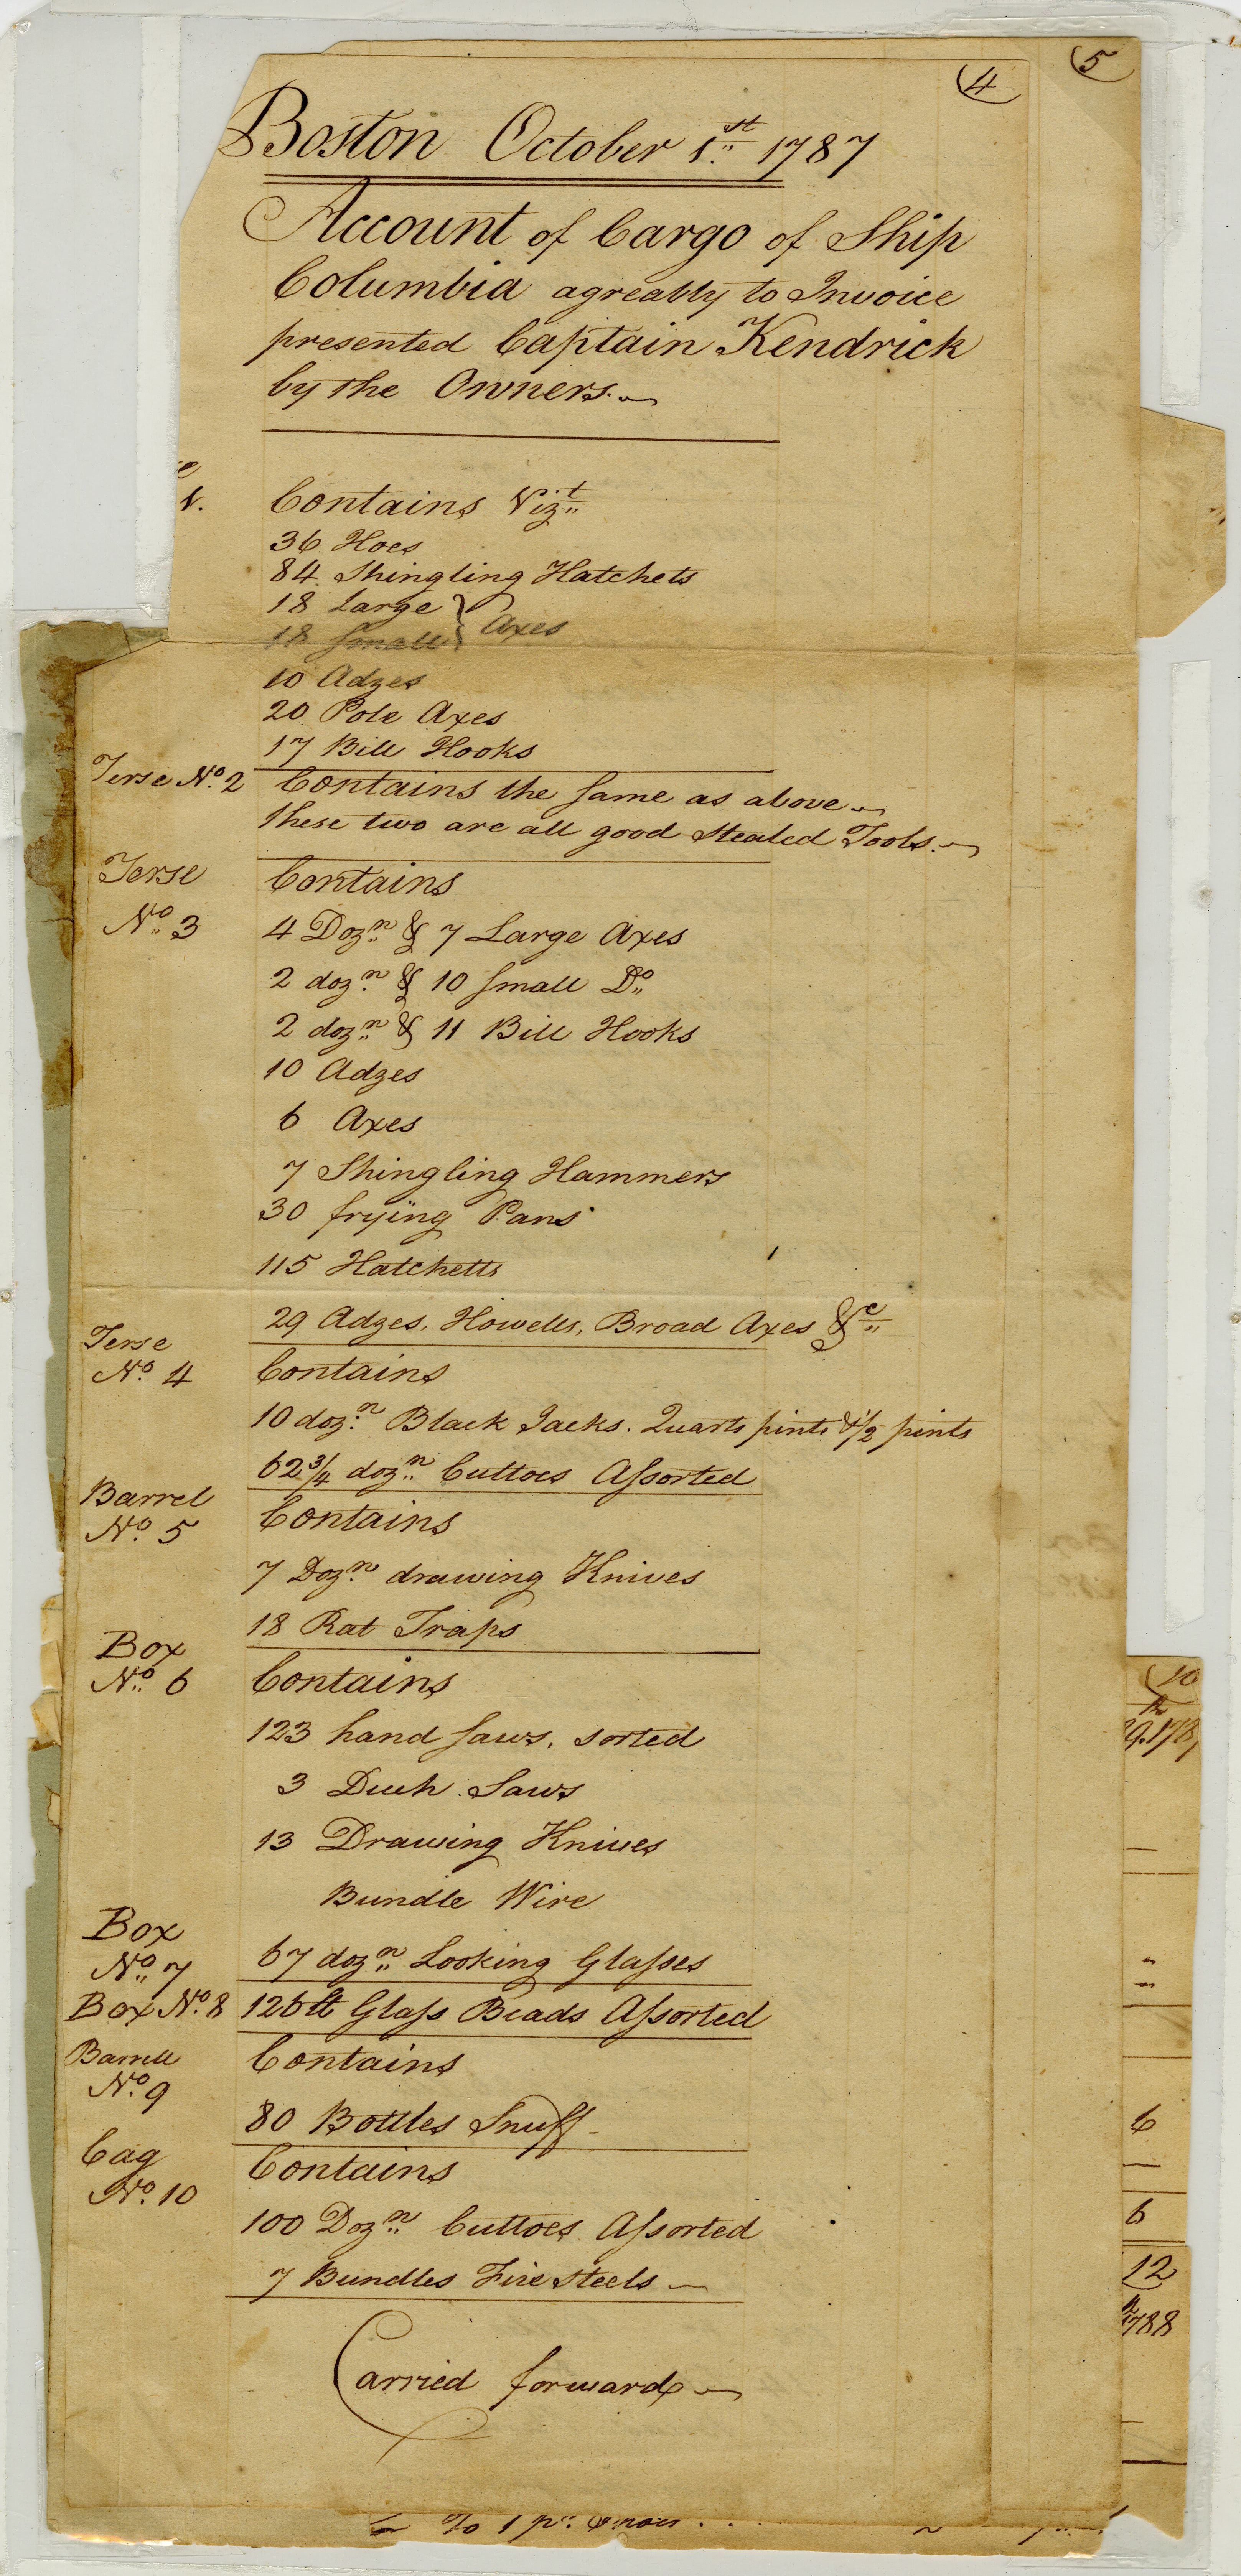 (4)
(5)
Boston October 1st 1787
Account of Cargo of Ship
Columbia agreably to Invoice
presented Captain Kendrick
by the Owners.
1.
Contains Vizt
36 Hoes
84 Shingling Hatchets
18 Large } Axes
18 Small
10 Adzes
20 Pole Axes
17 Bill Hooks
Terse No. 2 Contains the same as above
these two are all good Stealed Tools.
Terse Contains
No. 3 4 Dozn & 7 Large Axes
2 dozn & 10 small Do
2 dozn & 11 Bill Hooks
10 Adzes
6 Axes
7 Shingling Hammers
30 frying Pans
115 Hatchetts
29 Adzes, Howells, Broad Axes &c
Terse
No. 4 Contains
10 dozn Black Jacks. Quarts pints & 1/2 pints
62 3/4 dozn Cuttoes Assorted
Barrel
No. 5 Contains
7 Dozn drawing Knives
18 Rat Traps
Box
No. 6 Contains
123 hand saws, sorted
3 Saws
13 Drawing Knives
Bundle Wire
Box
No. 7 67 dozn Looking Glasses
Box No. 8 126 lb Glass Beads Assorted
Barrell Contains
No. 9
80 Bottles Snuff
Cag Contains
No. 10
100 Dozn Cuttoes Assorted
7 Bundles Fire steels
Carried forward
(10
6
6
12
1788
To 1 pr.